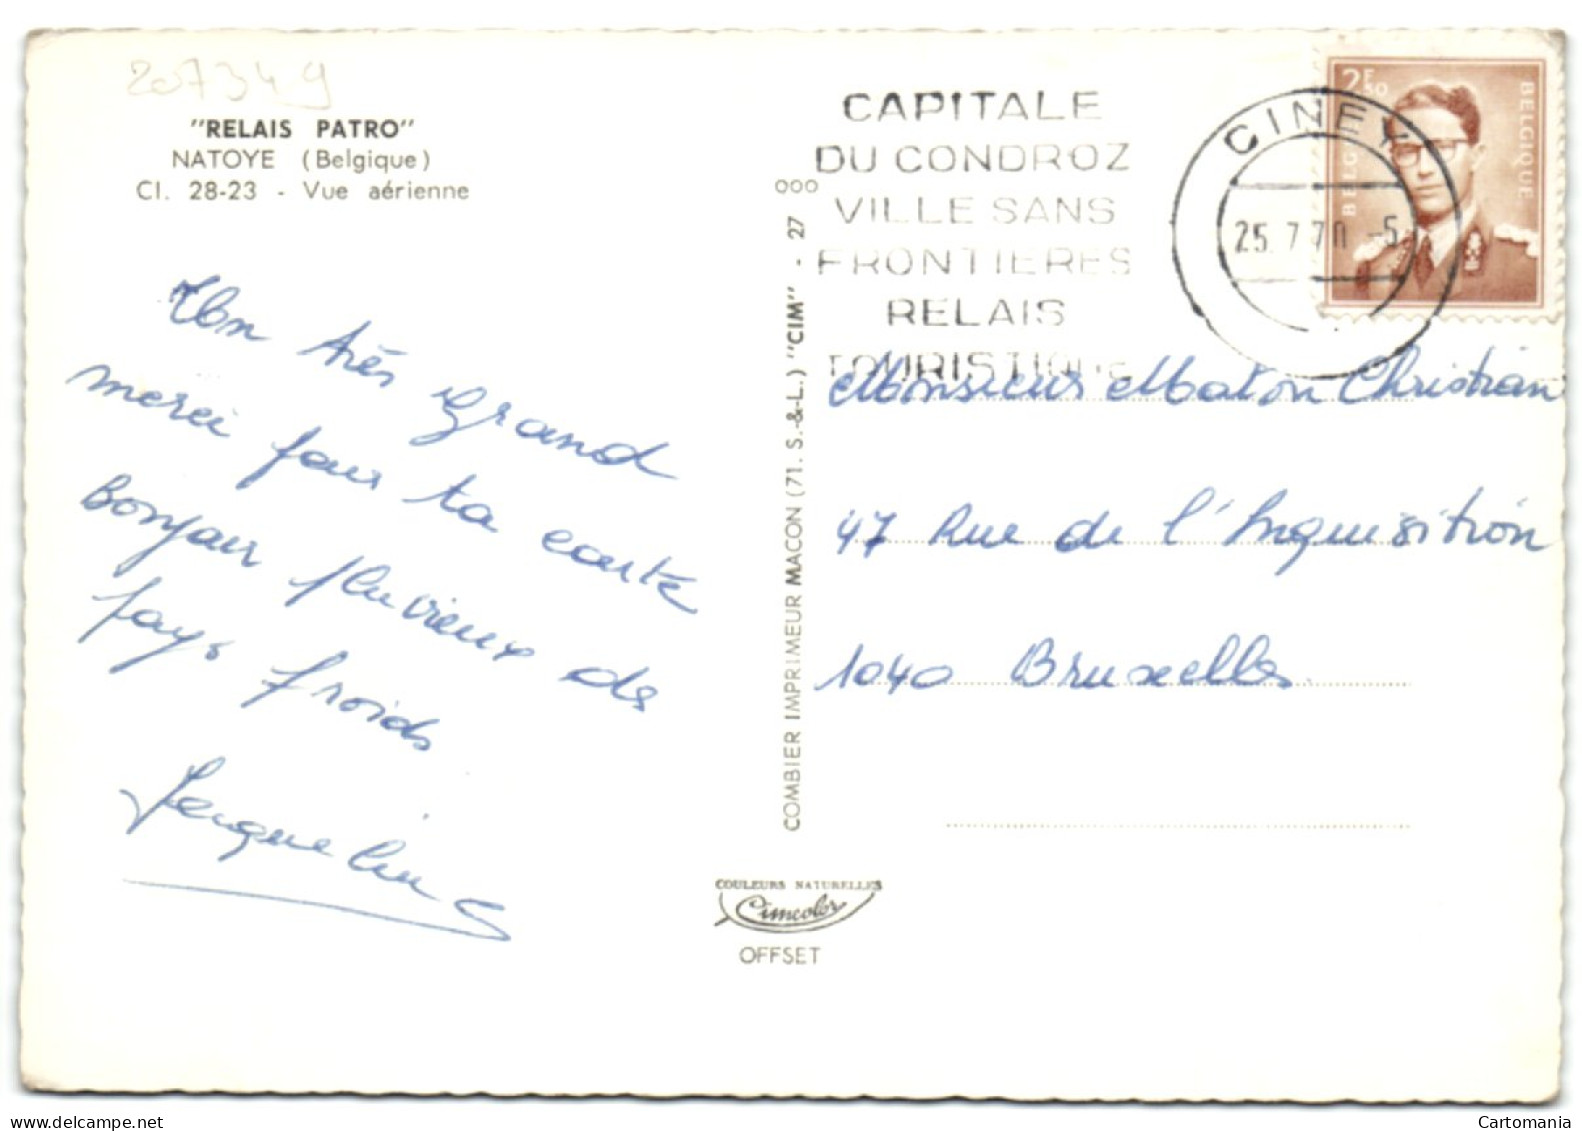 207349
"RELAIS PATRO"
NATOYE (Belgique)
Cl. 28-23 - Vue aérienne
Un très Grand
merci pour ta carte
Bonjour pluvieux des
pays froids
Jacqueline
COMBIER IMPRIMEUR MACON (71. S.-&-L.) "CIM" - 27
COULEURS NATURELLES
Cimcolor
OFFSET
CAPITALE
DU CONDROZ
VILLE SANS
FRONTIERES
RELAIS
TOURISTIQUE
CINEY
25.7.70 -5
2F50
BELGIE
BELGIQUE
Monsieur Maton Christian
47 Rue de l'Inquisition
1040 Bruxelles
Cartomania